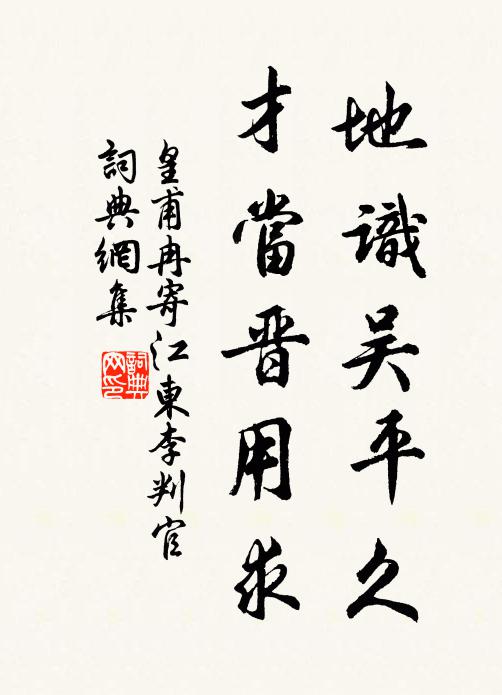 地識吴平久
才當晋用求
皇甫冉寄江東李判官
詞典網集
詞典网印